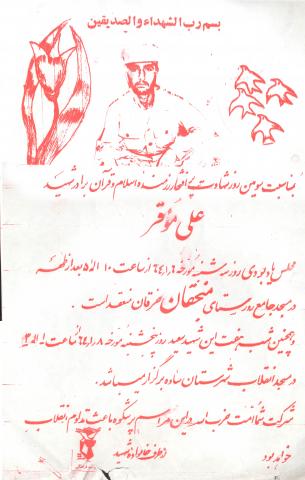 بسم رب الشهداء والصدیقین
بمناسبت سومین روز شهادت پر افتخار رزمنده اسلام و قرآن برادر شهید
علی مؤقر
مجلس یادبودی روز سه‌شنبه مورخه ۶۴/۱/۶ از ساعت ۱۰ الی ۵ بعد از ظهر
در مسجد جامع روستای منحقان خرقان منعقد است.
و همچنین شب هفت این شهید سعید روز پنجشنبه مورخه ۶۴/۱/۸ از ساعت ۱ الی
در مسجد انقلاب شهرستان ساوه برگزار میباشد.
شرکت شما امت حزب الله در این مراسم پرشکوه باعث تداوم انقلاب
خواهد بود
از طرف خانواده شهید